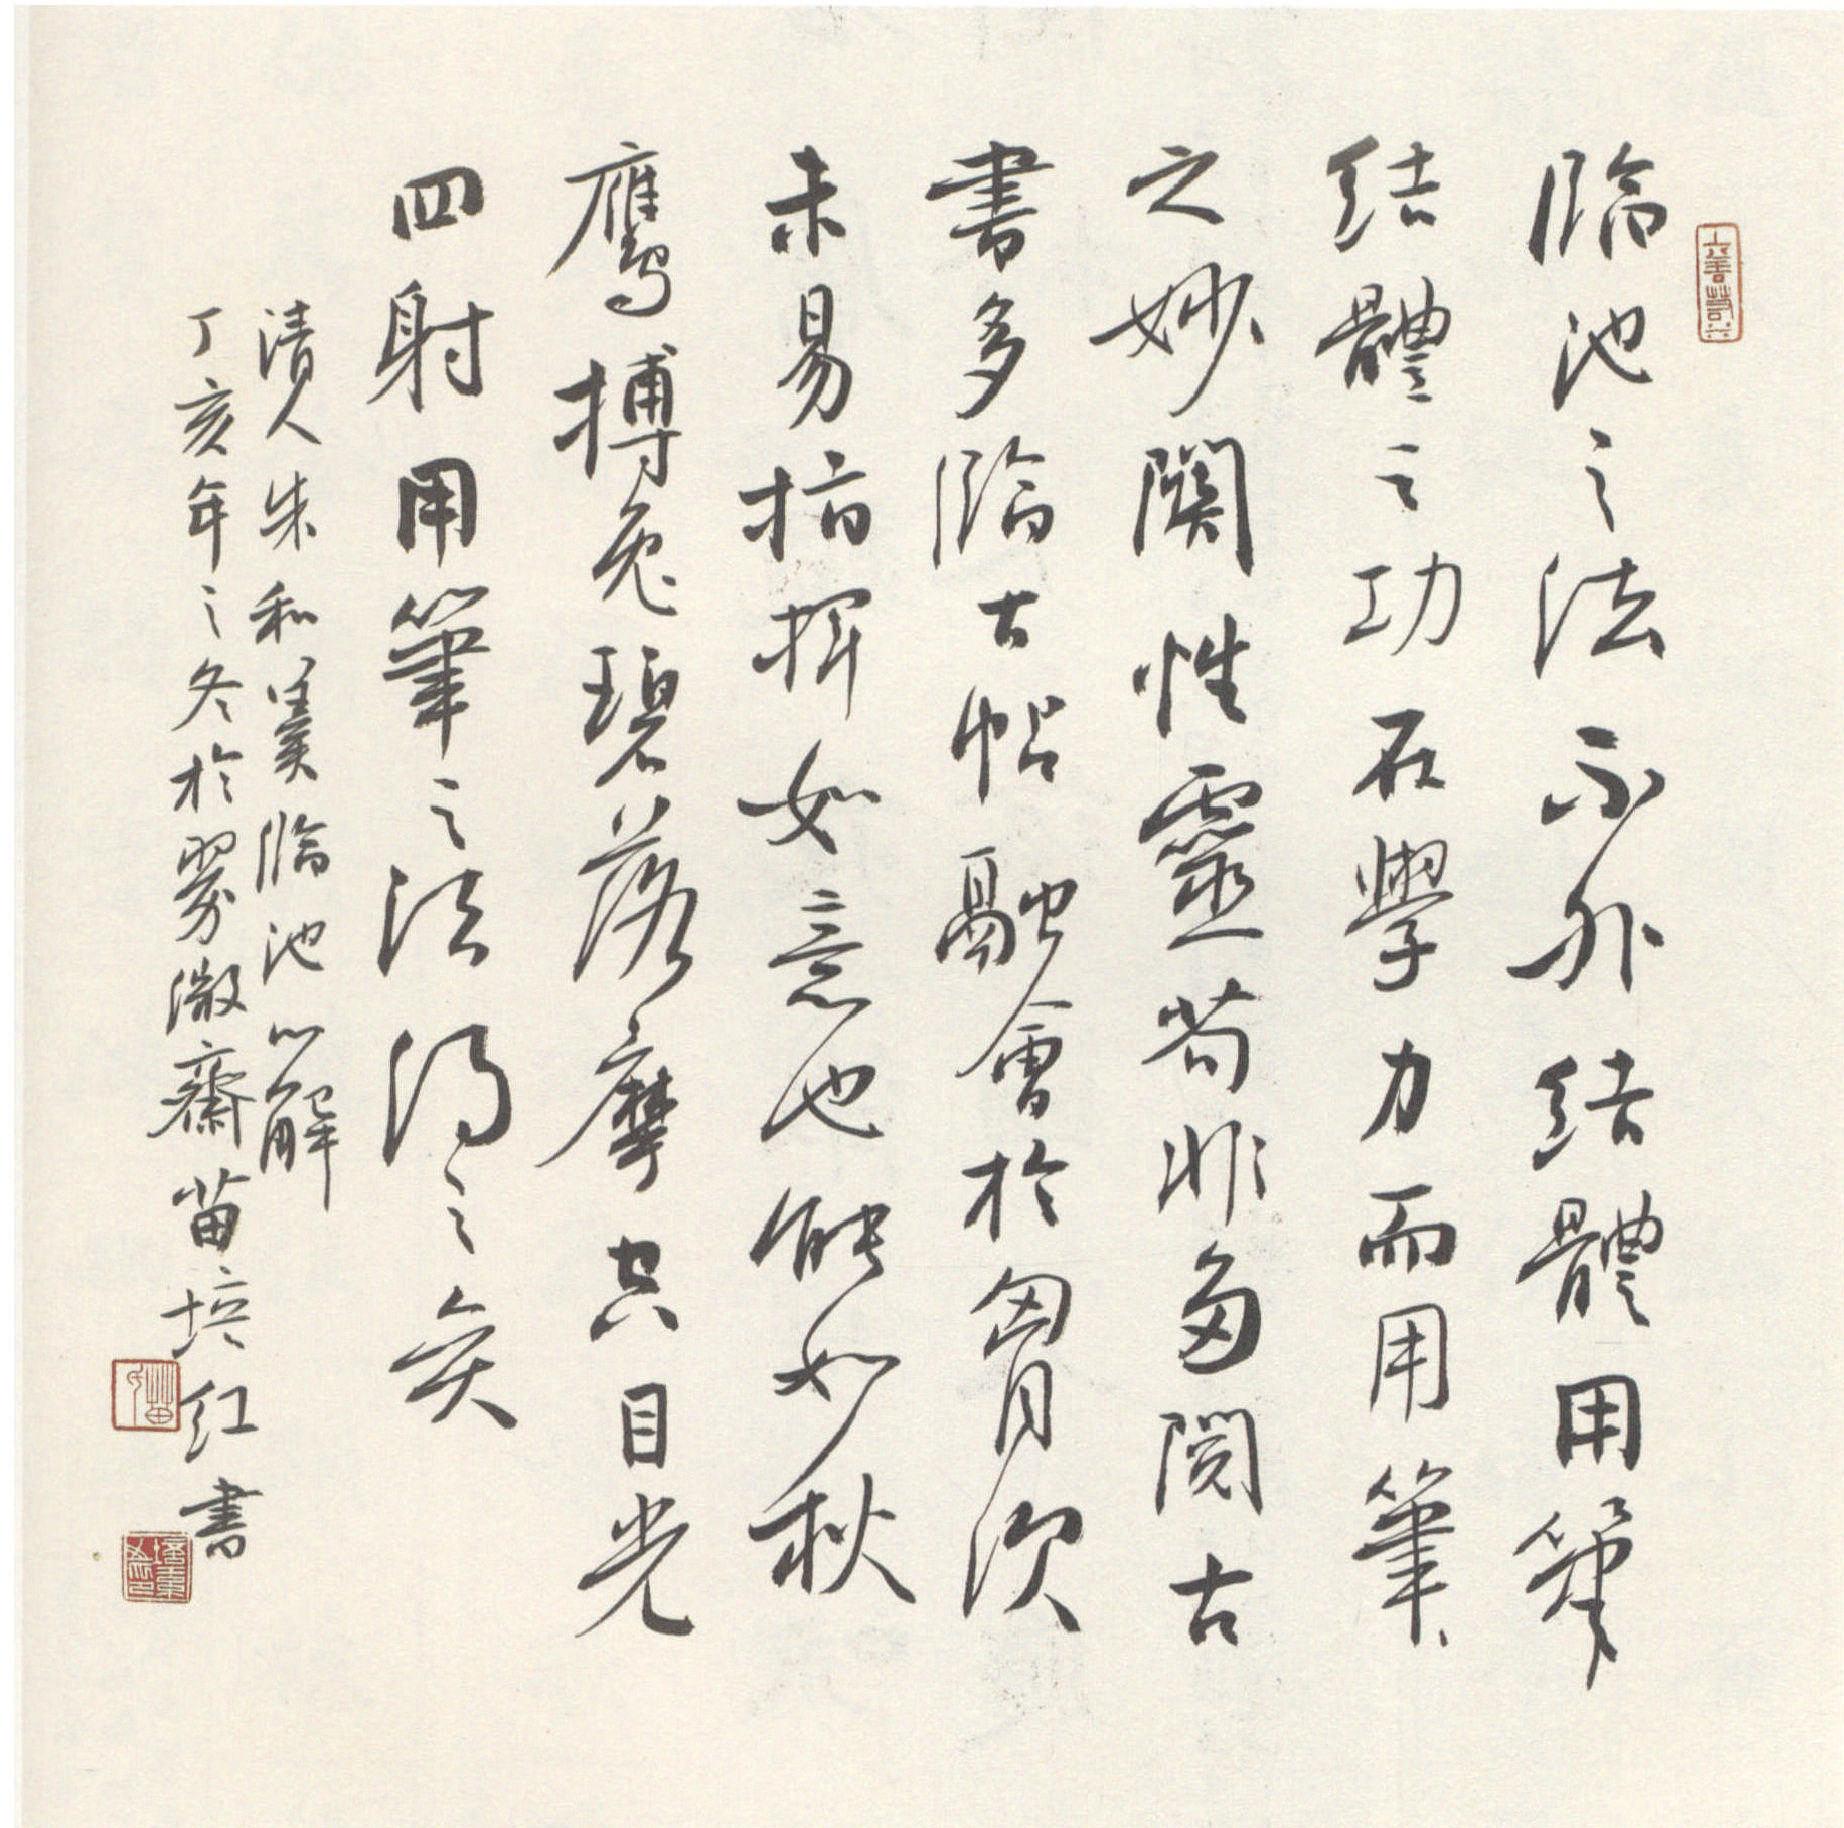 臨池之法不外結體用筆
結體之功在學力而用筆
之妙關性靈苟非多閱古
書多臨古帖融會於胷次
未易指揮如意也能如秋
鷹搏兔碧落摩空目光
四射用筆之法得之矣
清人朱和羹臨池心解
丁亥年之冬於翏微齋苗培红書